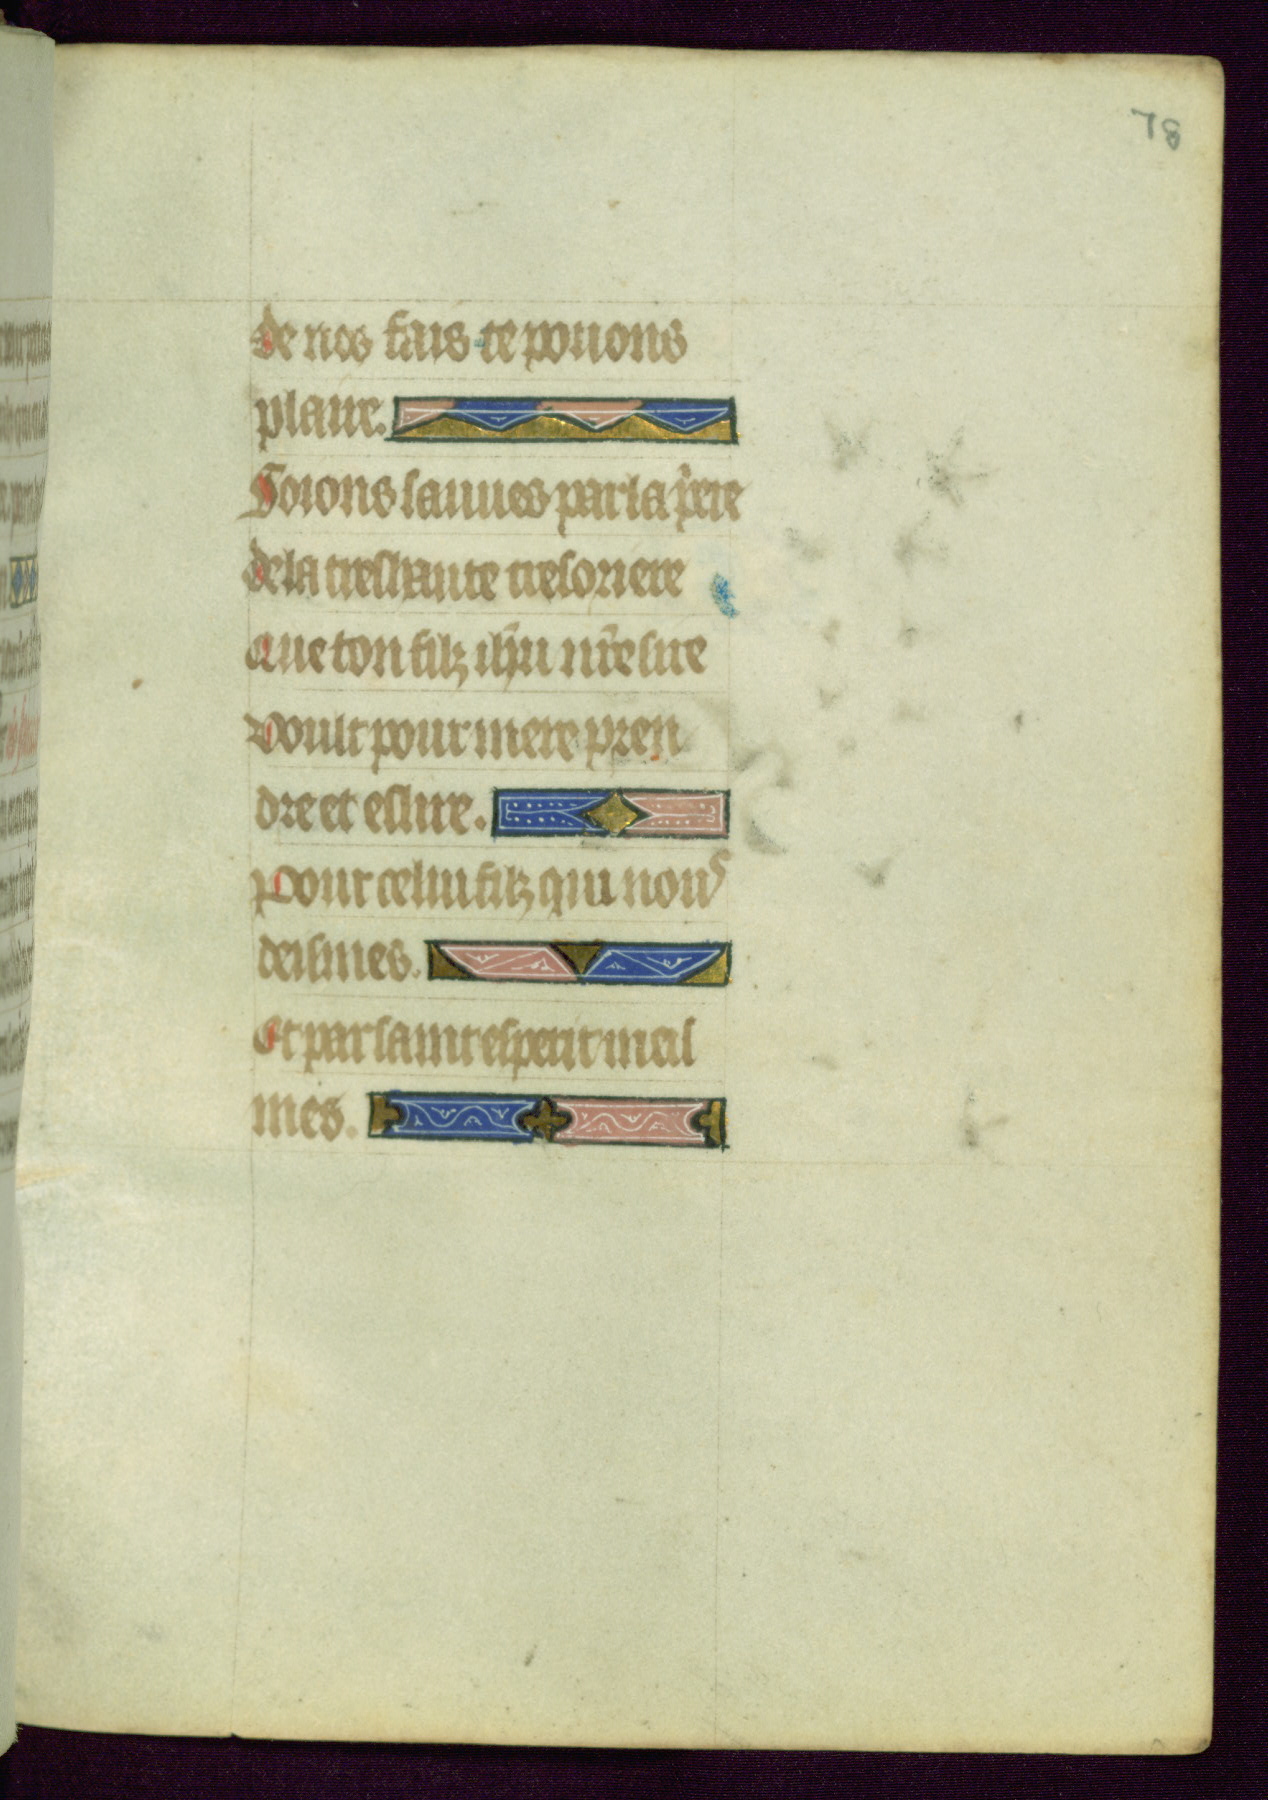 78
de nos fais te puions
plaire.
Soions sauues par la p̃iere
de la treshaute tresoriere
Que ton filz ih̃u nr̃e sire
Voult pour mere pren
dre et eslire.
Pour celui filz qui nous
Et par saint esperit meis
mes.